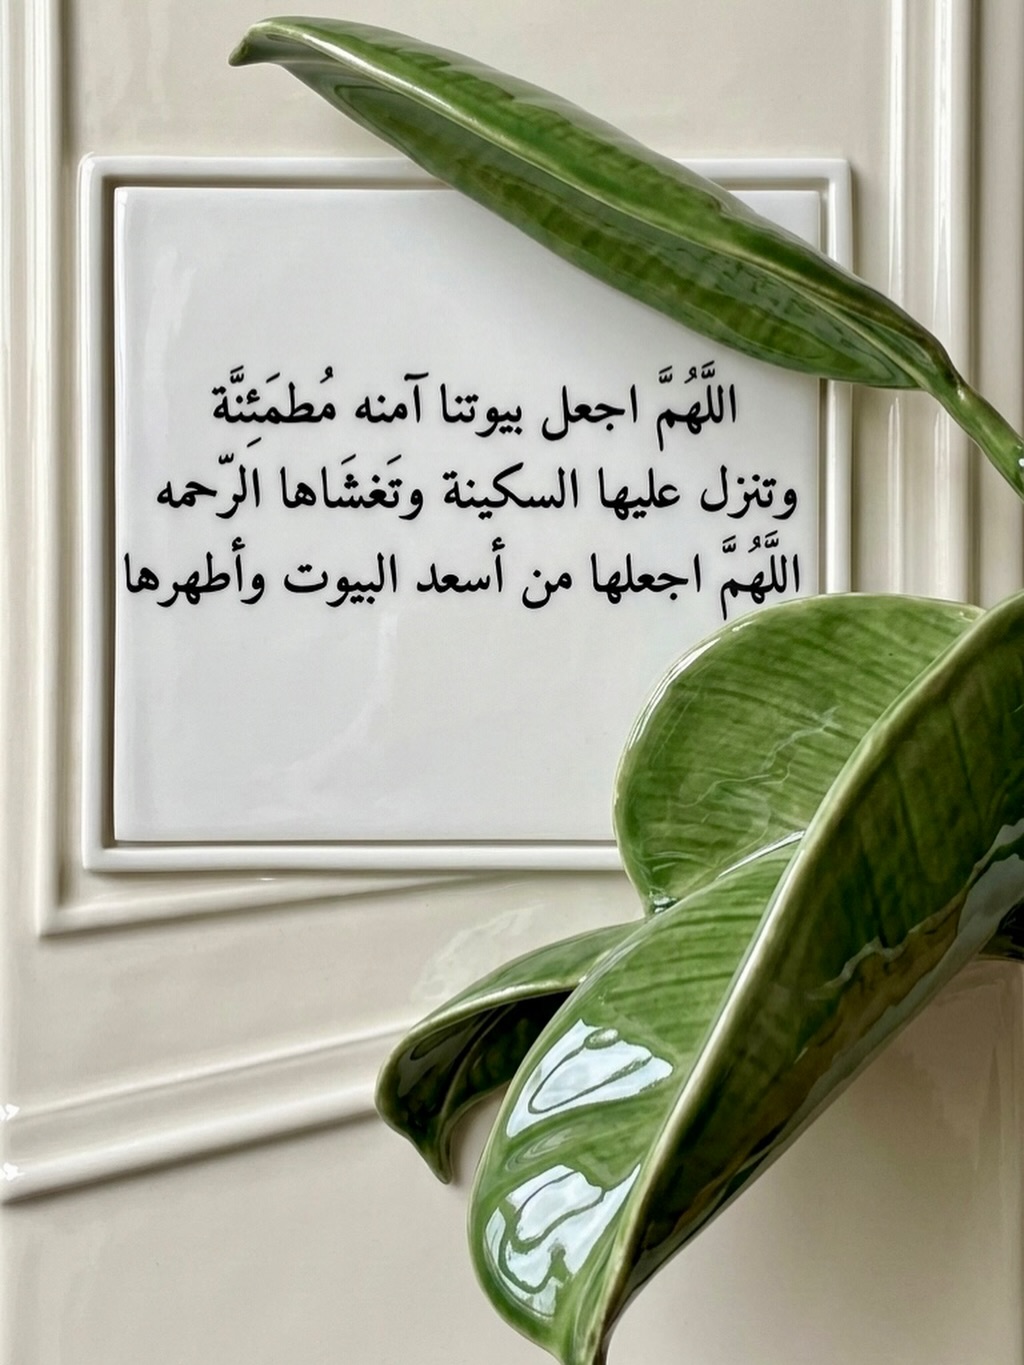 اللَّهُمَّ اجعل بيوتنا آمنه مُطمَئِنَّة
وتنزل عليها السكينة وتَغشَاها الرّحمه
اللَّهُمَّ اجعلها من أسعد البيوت وأطهرها